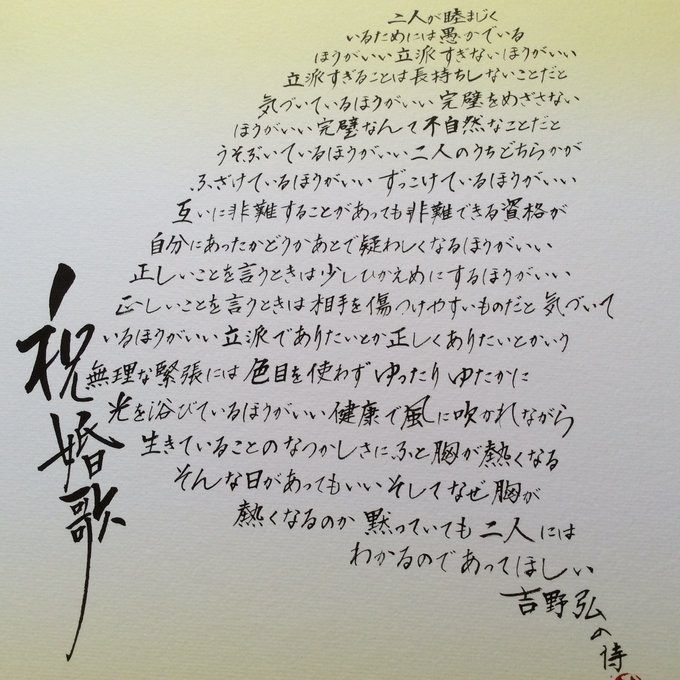 祝婚歌
二人が睦まじく
いるためには愚かでいる
ほうがいい立派すぎないほうがいい
立派すぎることは長持ちしないことだと
気づいているほうがいい完璧をめざさない
ほうがいい完璧なんて不自然なことだと
うそぶいているほうがいい二人のうちどちらかが
ふざけているほうがいいずっこけているほうがいい
互いに非難することがあっても非難できる資格が
自分にあったかどうかあとで疑わしくなるほうがいい
正しいことを言うときは少しひかえめにするほうがいい
正しいことを言うときは相手を傷つけやすいものだと気づいて
いるほうがいい立派でありたいとか正しくありたいとかいう
無理な緊張には色目を使わずゆったりゆたかに
光を浴びているほうがいい健康で風に吹かれながら
生きていることのなつかしさにふと胸が熱くなる
そんな日があってもいいそしてなぜ胸が
熱くなるのか黙っていても二人には
わかるのであってほしい
吉野弘の詩